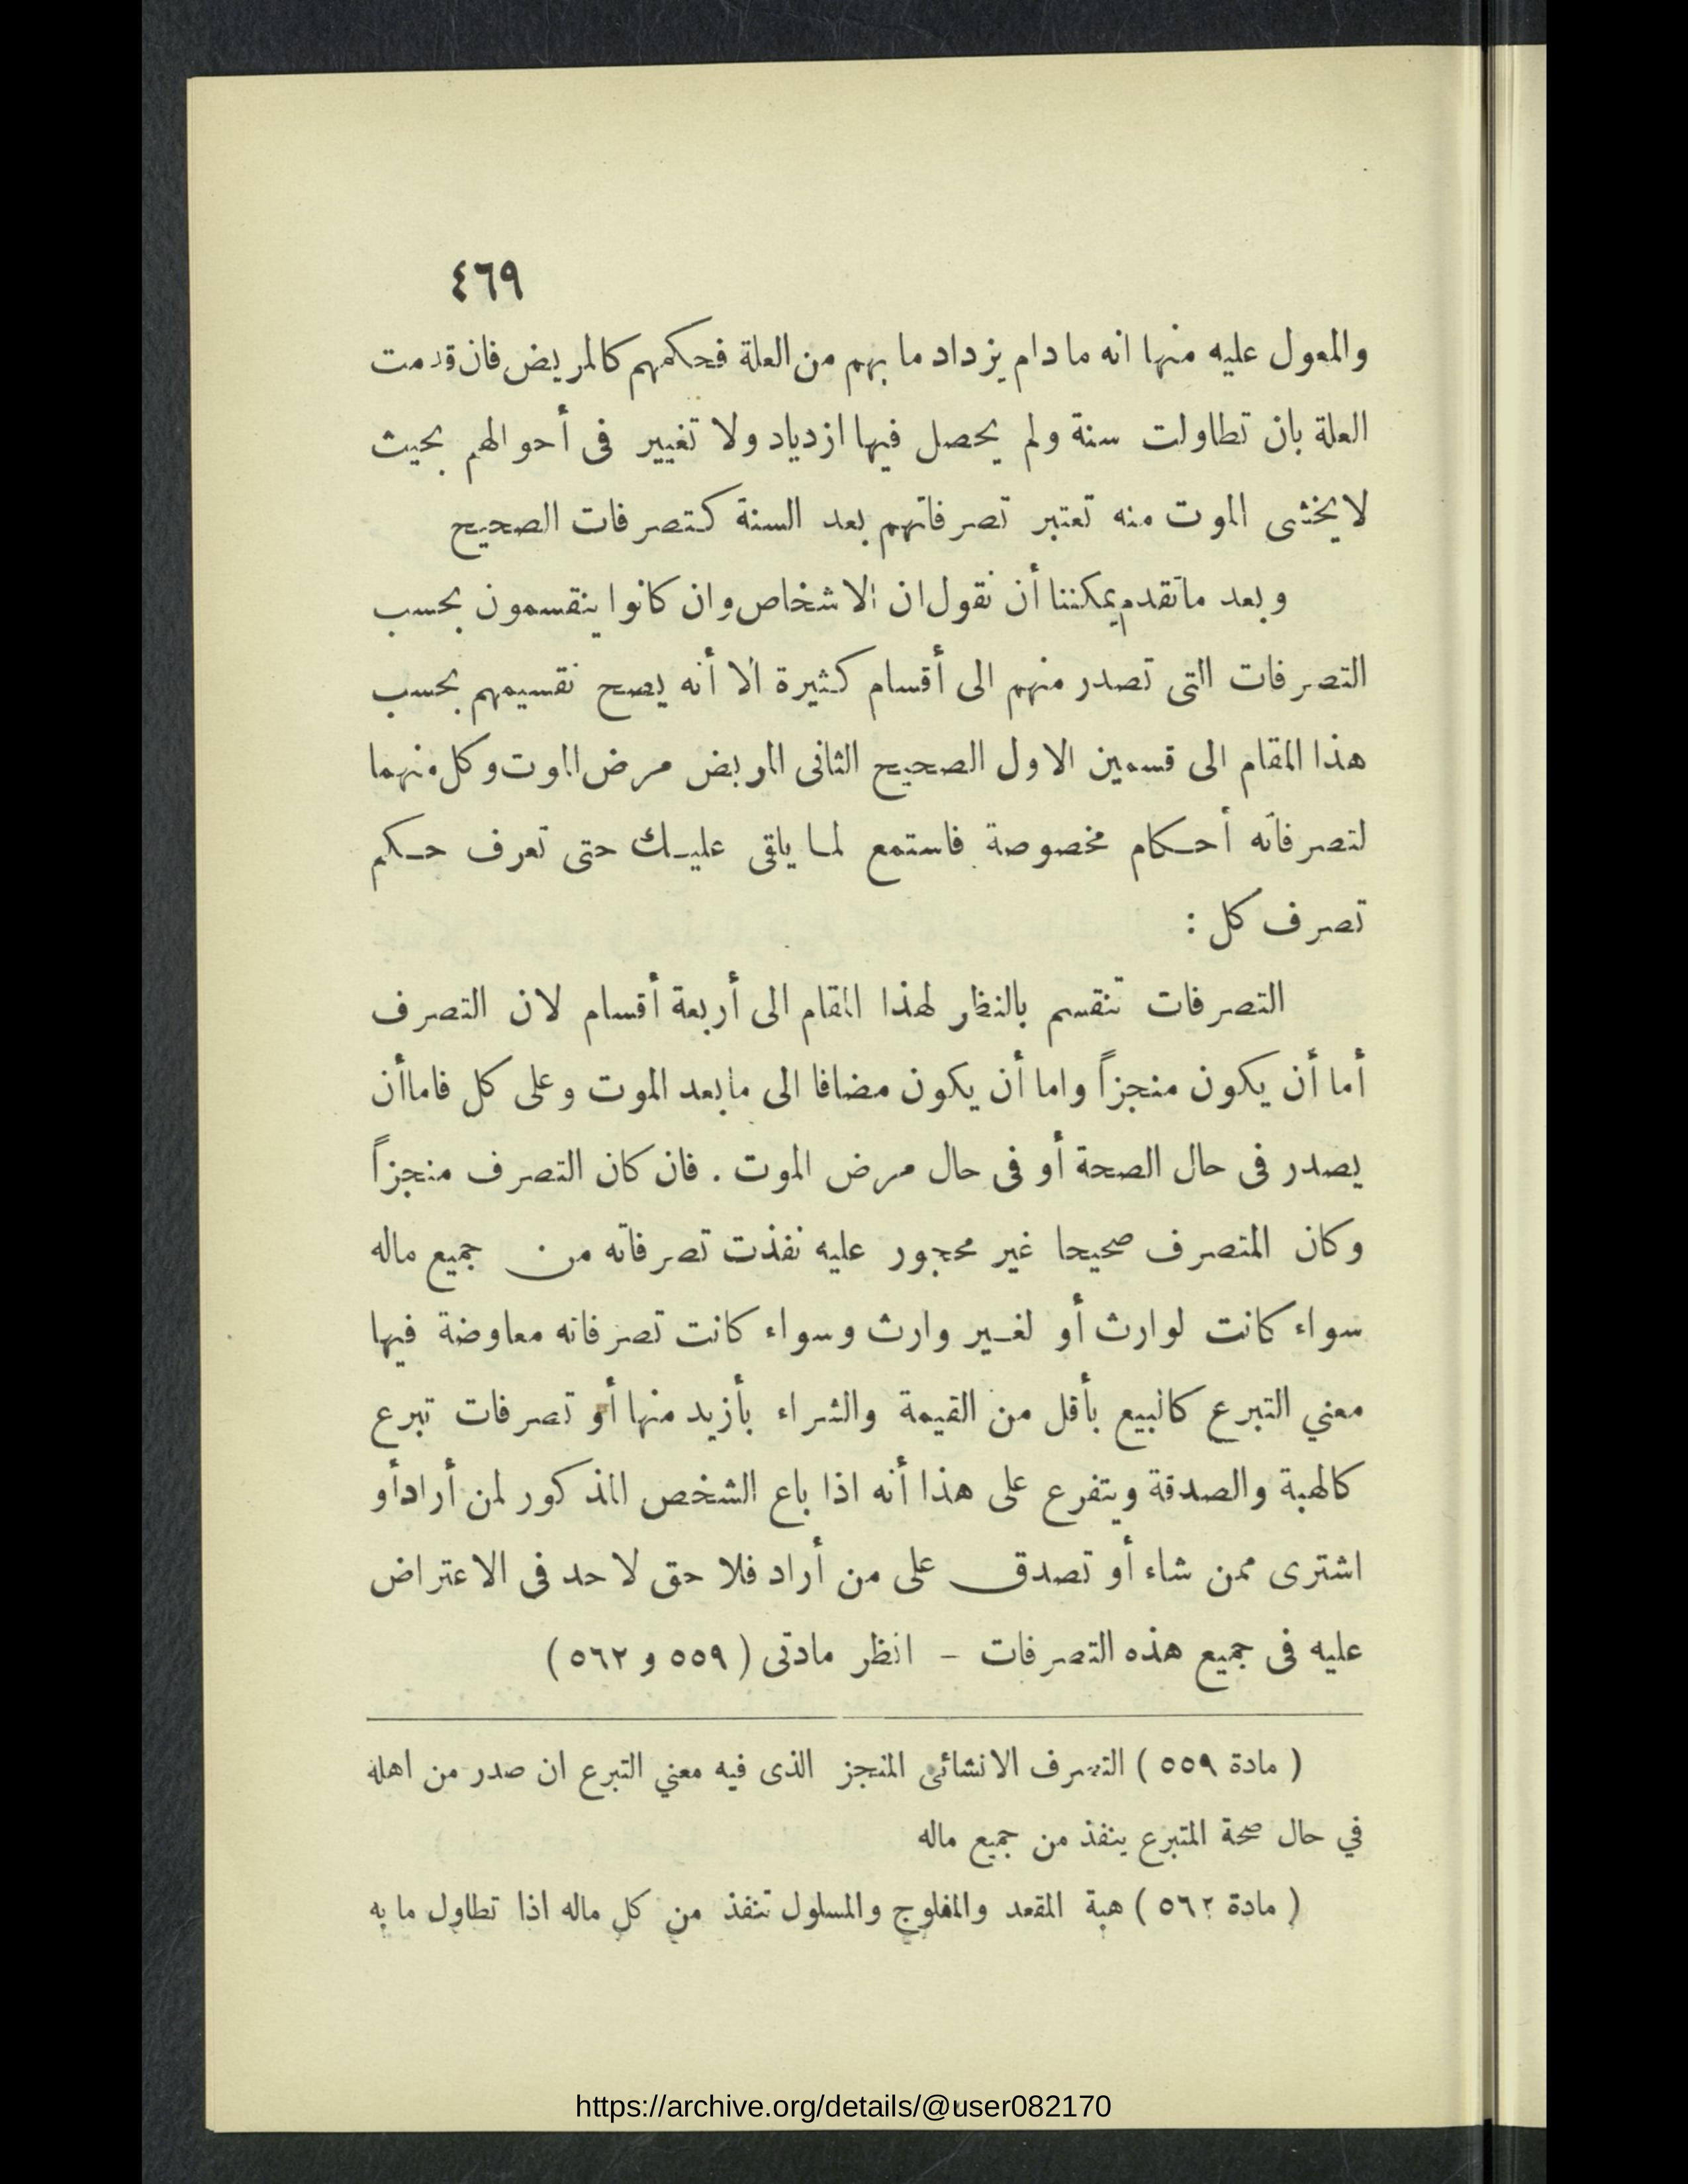 ٤٦٩
والمعول عليه منها انه ما دام يزداد ما بهم من العلة فحكمهم كالمريض فان قدمت
العلة بان تطاولت سنة ولم يحصل فيها ازدياد ولا تغيير فى أحوالهم بحيث
لا يخشى الموت منه تعتبر تصرفاتهم بعد السنة كتصرفات الصحيح
وبعد ماتقدم يمكننا أن نقول ان الاشخاص وان كانوا ينقسمون بحسب
التصرفات التى تصدر منهم الى أقسام كثيرة الا أنه يصح تقسيمهم بحسب
هذا المقام الى قسمين الاول الصحيح الثانى المريض مرض الموت وكل منهما
لتصرفاته أحكام مخصوصة فاستمع لما يلقى عليك حتى تعرف حكم
تصرف كل :
التصرفات تنقسم بالنظر لهذا المقام الى أربعة أقسام لان التصرف
أما أن يكون منجزاً واما أن يكون مضافا الى مابعد الموت وعلى كل فاماأن
يصدر فى حال الصحة أو فى حال مرض الموت . فان كان التصرف منجزاً
وكان المتصرف صحيحا غير محجور عليه نفذت تصرفاته من جميع ماله
سواء كانت لوارث أو لغير وارث وسواء كانت تصرفاته معاوضة فيها
معني التبرع كالبيع بأقل من القيمة والشراء بأزيد منها أو تصرفات تبرع
كالهبة والصدقة ويتفرع على هذا أنه اذا باع الشخص المذكور لمن أراد أو
اشترى ممن شاء أو تصدق على من أراد فلا حق لاحد فى الاعتراض
عليه فى جميع هذه التصرفات – انظر مادتى ( ٥٥٩ و ٥٦٢ )
( مادة ٥٥٩ ) التصرف الانشائى المنجز الذى فيه معني التبرع ان صدر من اهله
في حال صحة المتبرع ينفذ من جميع ماله
( مادة ٥٦٢ ) هبة المقعد والمفلوج والمسلول تنفذ من كل ماله اذا تطاول ما به
https://archive.org/details/@user082170